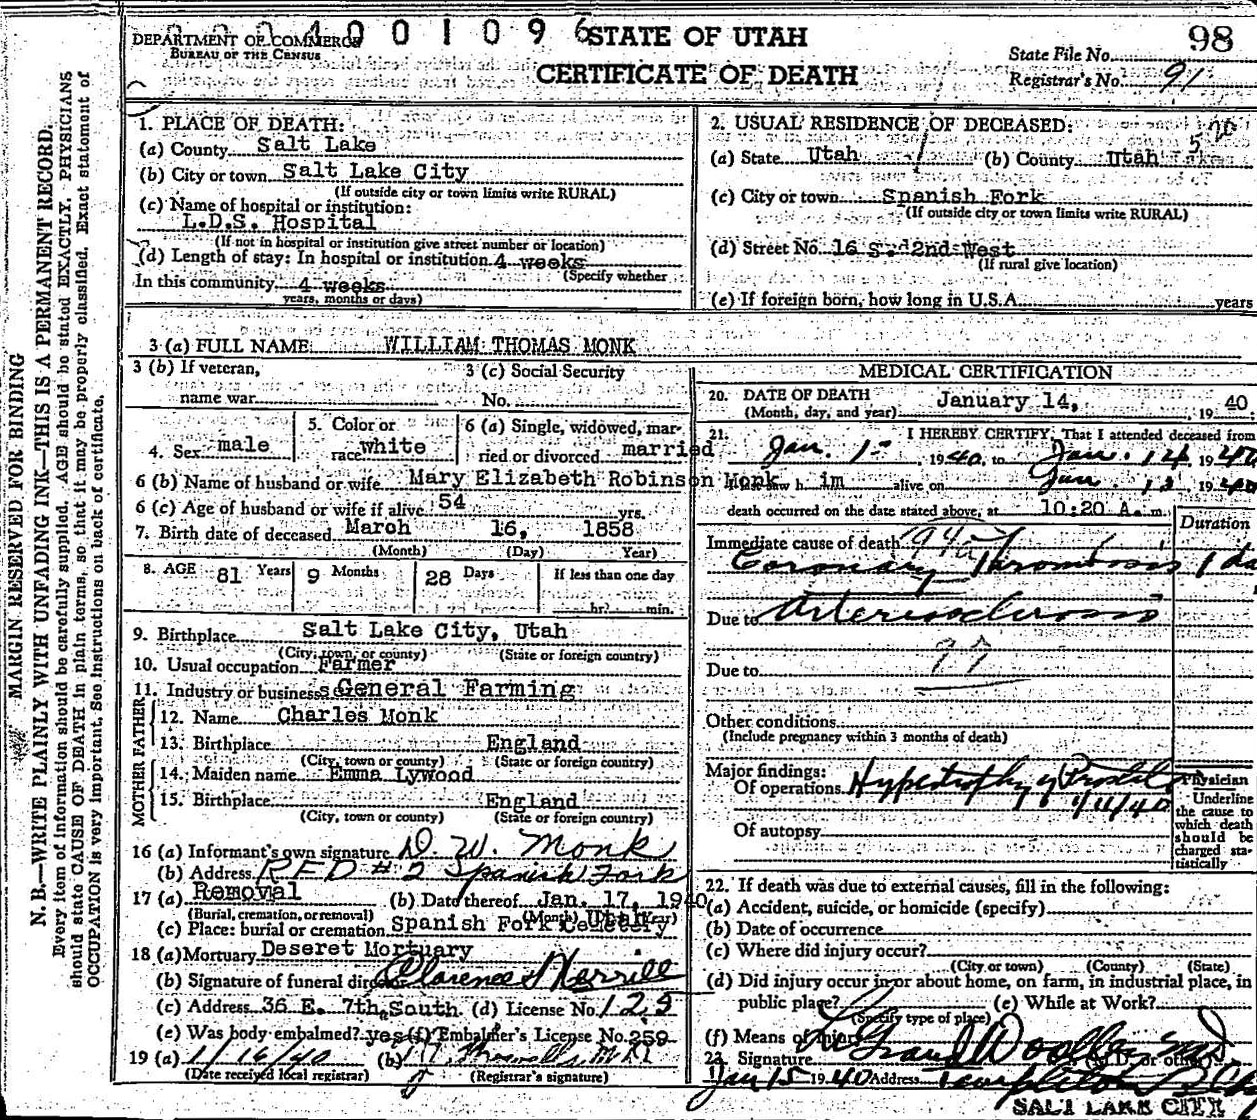 0 0 0 4 0 0 1 0 9 6
DEPARTMENT OF COMMERCE
BUREAU OF THE CENSUS
STATE OF UTAH
CERTIFICATE OF DEATH
98
State File No.
Registrar's No. 91
MARGIN RESERVED FOR BINDING
N. B.—WRITE PLAINLY WITH UNFADING INK—THIS IS A PERMANENT RECORD.
Every item of information should be carefully supplied. AGE should be stated EXACTLY. PHYSICIANS
should state CAUSE OF DEATH in plain terms, so that it may be properly classified. Exact statement of
OCCUPATION is very important. See instructions on back of certificate.
1. PLACE OF DEATH:
(a) County Salt Lake
(b) City or town Salt Lake City
(If outside city or town limits write RURAL)
(c) Name of hospital or institution:
L.D.S. Hospital
(If not in hospital or institution give street number or location)
(d) Length of stay: In hospital or institution 4 weeks
(Specify whether
In this community 4 weeks
years, months or days)
2. USUAL RESIDENCE OF DECEASED:
(a) State Utah (b) County Utah
(c) City or town Spanish Fork
(If outside city or town limits write RURAL)
(d) Street No. 16 S. 2nd West
(If rural give location)
(e) If foreign born, how long in U.S.A. years
3 (a) FULL NAME WILLIAM THOMAS MONK
3 (b) If veteran,
name war
3 (c) Social Security
No.
4. Sex male
5. Color or
race white
6 (a) Single, widowed, mar-
ried or divorced married
6 (b) Name of husband or wife Mary Elizabeth Robinson Monk
6 (c) Age of husband or wife if alive 54 yrs.
7. Birth date of deceased March 16, 1858
(Month) (Day) Year)
8. AGE 81 Years 9 Months 28 Days If less than one day
hr. min.
9. Birthplace Salt Lake City, Utah
(City, town, or county) (State or foreign country)
10. Usual occupation Farmer
11. Industry or business General Farming
FATHER
12. Name Charles Monk
13. Birthplace England
(City, town or county) (State or foreign country)
MOTHER
14. Maiden name Emma Lywood
15. Birthplace England
(City, town or county) (State or foreign country)
16 (a) Informant's own signature D. W. Monk
(b) Address RFD #2 Spanish Fork
17 (a) Removal (b) Date thereof Jan. 17, 1940
(Burial, cremation, or removal) (Month) (Year)
(c) Place: burial or cremation Spanish Fork Cemetery Utah
18 (a) Mortuary Deseret Mortuary
(b) Signature of funeral director Clarence Merrill
(c) Address 36 E. 7th South (d) License No. 125
(e) Was body embalmed? yes (f) Embalmer's License No. 259
19 (a) 1/16/40 (b)
(Date received local registrar) (Registrar's signature)
MEDICAL CERTIFICATION
20. DATE OF DEATH
(Month, day, and year) January 14, 1940
21. I HEREBY CERTIFY, That I attended deceased from
Jan. 1 1940, to Jan. 14, 1940
I last saw h im alive on Jan. 13, 1940
death occurred on the date stated above, at 10:20 A. m.
Duration
Immediate cause of death 94a
Coronary Thrombosis 1 da
Due to Arteriosclerosis
97
Due to
Other conditions
(Include pregnancy within 3 months of death)
Major findings:
Of operations Hypertrophy of Prostate
1/11/40
Of autopsy
Physician
Underline
the cause to
which death
should be
charged sta-
tistically
22. If death was due to external causes, fill in the following:
(a) Accident, suicide, or homicide (specify)
(b) Date of occurrence
(c) Where did injury occur?
(City or town) (County) (State)
(d) Did injury occur in or about home, on farm, in industrial place, in
public place? (e) While at Work?
(Specify type of place)
(f) Means of injury
23. Signature LeGrand Woolley M.D. or other
Jan 15 1940 Address Templeton Bldg
SALT LAKE CITY